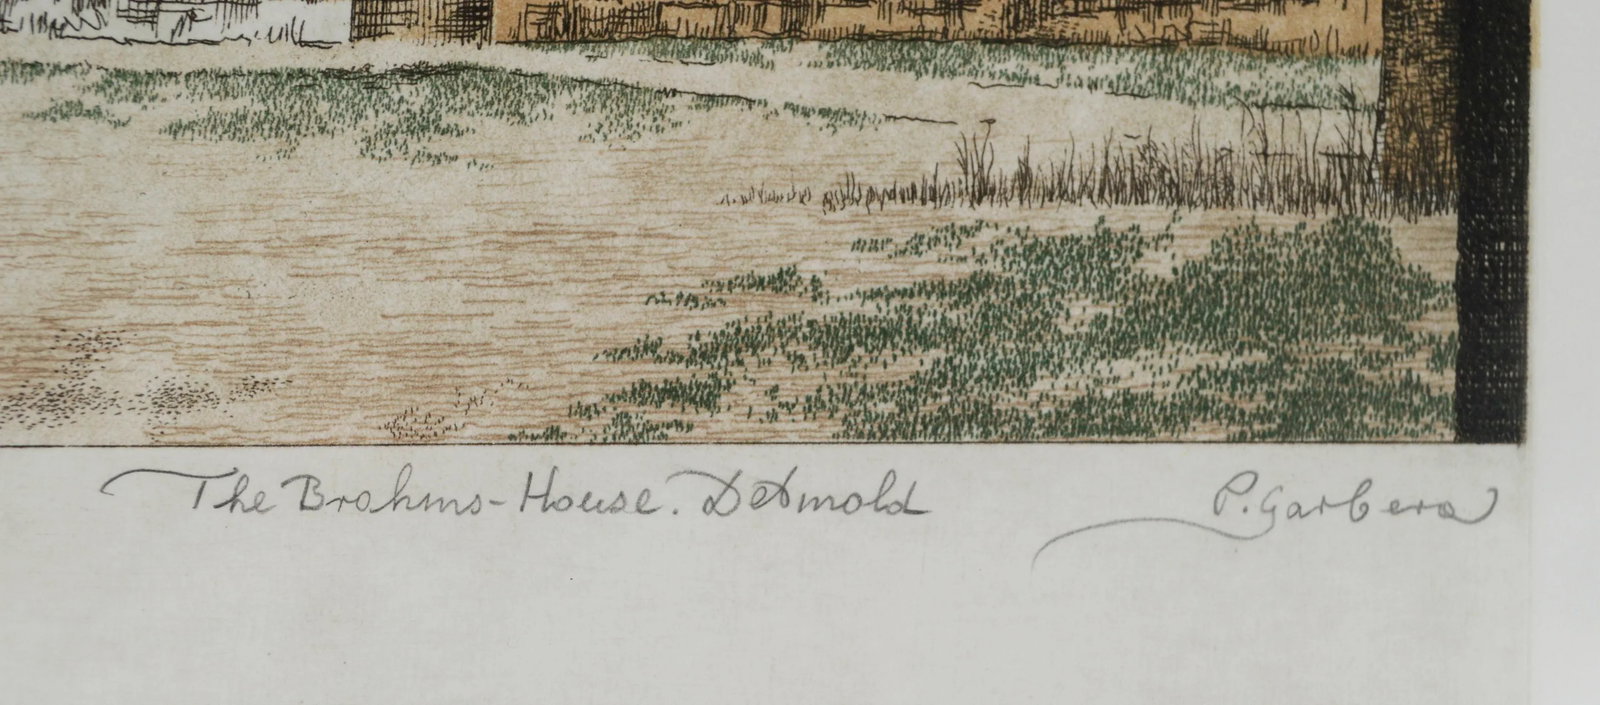 The Brahms-House. Detmold
P. Garbera